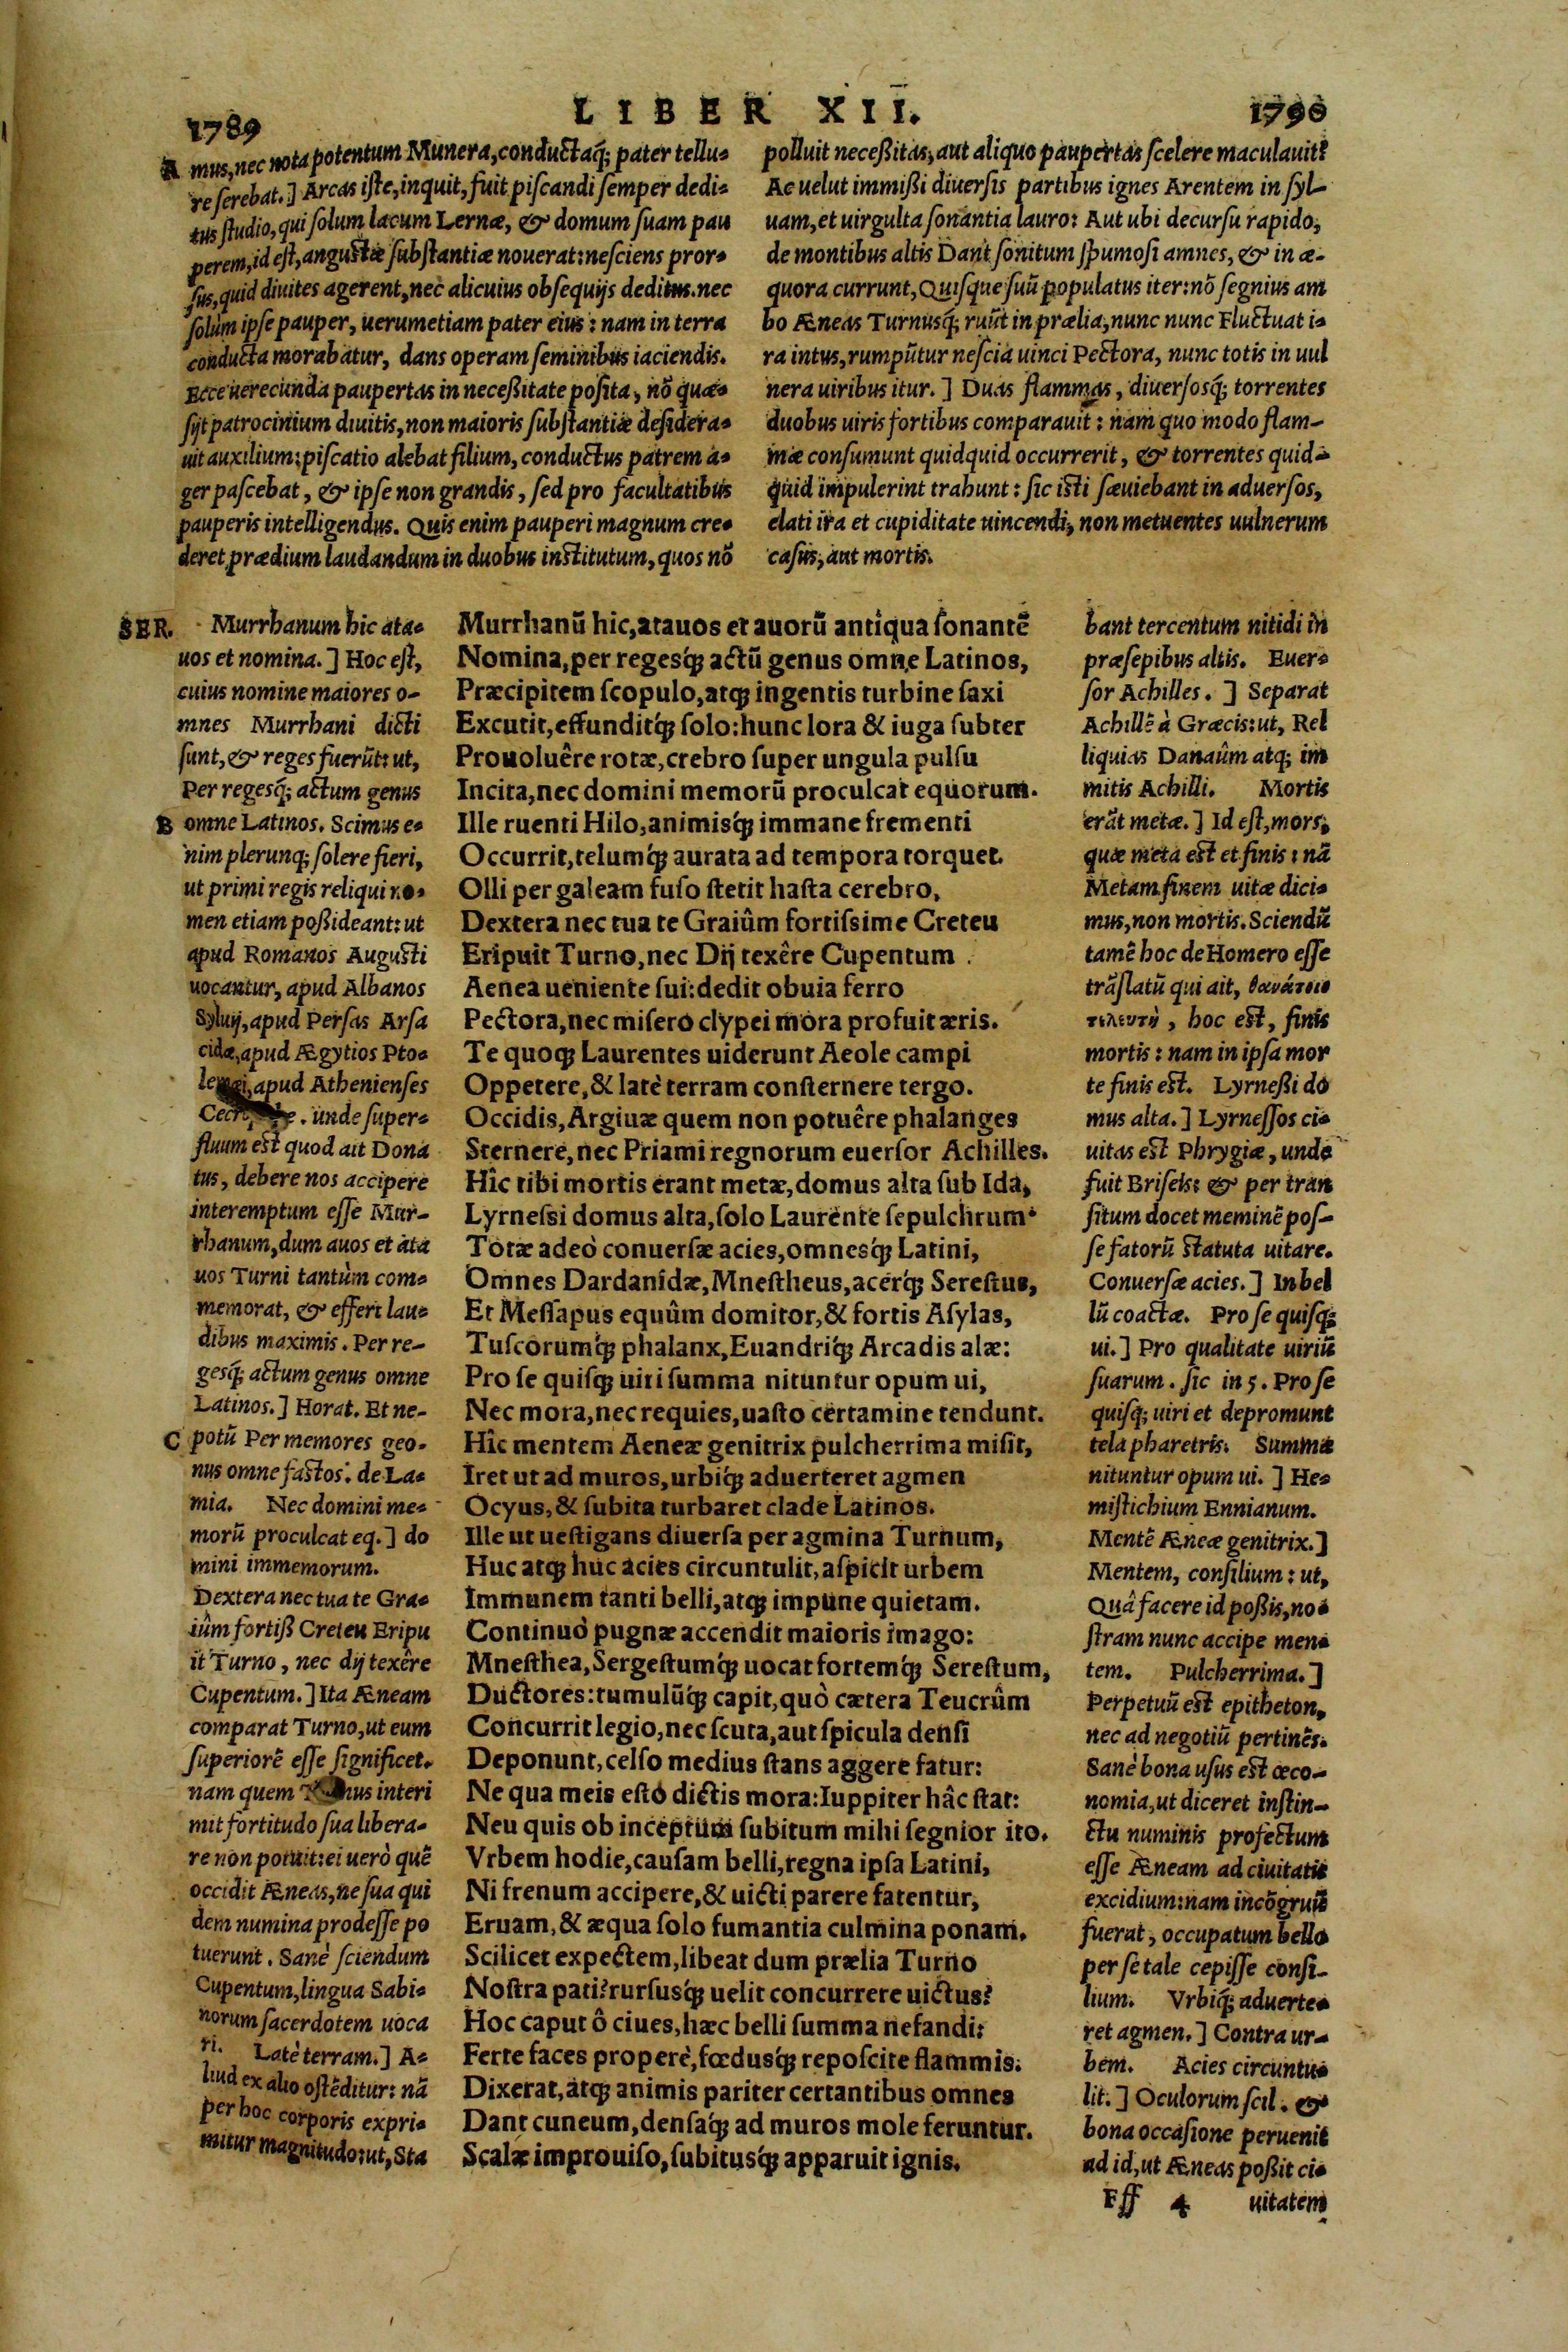 1789
LIBER XII.
1790
A mus, nec nota potentum Munera, conductaq́; pater tellu-
re serebat.] Arcas iste, inquit, fuit piscandi semper dedi-
tus studio, qui solum lacum Lernæ, & domum suam pau
perem, id est, angustæ substantiæ nouerat: nesciens pror-
sus, quid diuites agerent, nec alicuius obsequijs deditus. nec
solùm ipse pauper, uerumetiam pater eius: nam in terra
conducta morabatur, dans operam seminibus iaciendis.
Ecce uerecunda paupertas in neceßitate posita, nō quæ-
sijt patrocinium diuitis, non maioris substantiæ desidera-
uit auxilium: piscatio alebat filium, conductus patrem a-
ger pascebat, & ipse non grandis, sed pro facultatibus
pauperis intelligendus. Quis enim pauperi magnum cre-
deret prædium laudandum in duobus institutum, quos nō
polluit neceßitas, aut aliquo paupertas scelere maculauit?
Ac uelut immißi diuersis partibus ignes Arentem in syl-
uam, et uirgulta sonantia lauro: Aut ubi decursu rapido,
de montibus altis Dant sonitum spumosi amnes, & in æ-
quora currunt, Quisque suū populatus iter: nō segnius am
bo Æneas Turnusq́; ruūt in prælia, nunc nunc Fluctuat i-
ra intus, rumpūtur nescia uinci Pectora, nunc totis in uul
nera uiribus itur.] Duas flammas, diuersosq́; torrentes
duobus uiris fortibus comparauit: nam quo modo flam-
mæ consumunt quidquid occurrerit, & torrentes quid-
quid impulerint trahunt: sic isti sæuiebant in aduersos,
elati ira et cupiditate uincendi, non metuentes uulnerum
casus, aut mortis.
SER. Murrhanum hic ata-
uos et nomina.] Hoc est,
cuius nomine maiores o-
mnes Murrhani dicti
sunt, & reges fuerūt: ut,
Per regesq́; actum genus
B omne Latinos. Scimus e-
nim plerunq; solere fieri,
ut primi regis reliqui no-
men etiam poßideant: ut
apud Romanos Augusti
uocantur, apud Albanos
Syluij, apud Persas Arsa
cidæ, apud Ægytios Pto-
apud Athenienses
unde super-
fluum est quod ait Dona
tus, debere nos accipere
interemptum esse Mur-
rhanum, dum auos et ata
uos Turni tantùm com-
memorat, & effert lau-
dibus maximis. Per re-
gesq́; actum genus omne
Latinos.] Horat. Et ne-
C potū Per memores ge-
nus omne fastos. de La-
mia. Nec domini me-
morū proculcat eq.] do
mini immemorum.
Dextera nec tua te Gra-
iûm fortiß Creteu Eripu
it Turno, nec dij texêre
Cupentum.] Ita Æneam
comparat Turno, ut eum
superiorē esse significet.
nam quem interi
mit fortitudo sua libera-
re non potuit: ei uerò quē
occidit Æneas, ne sua qui
dem numina prodesse po
tuerunt. Sanè sciendum
Cupentum, lingua Sabi-
norum sacerdotem uoca
ri. Latè terram.] A-
liud ex alio ostēditur: nā
per hoc corporis expri-
mitur magnitudo: ut, Sta
Murrhanū hic, atauos et auorū antiqua sonantē
Nomina, per regesq́; actū genus omne Latinos,
Præcipitem scopulo, atq; ingentis turbine saxi
Excutit, effunditq́; solo: hunc lora & iuga subter
Prouoluêre rotæ, crebro super ungula pulsu
Incita, nec domini memorū proculcat equorum.
Ille ruenti Hilo, animisq́; immane frementi
Occurrit, telumq́; aurata ad tempora torquet.
Olli per galeam fuso stetit hasta cerebro,
Dextera nec tua te Graiûm fortissime Creteu
Eripuit Turno, nec Dij texêre Cupentum
Aenea ueniente sui: dedit obuia ferro
Pectora, nec misero clypei mora profuit æris.
Te quoq; Laurentes uiderunt Aeole campi
Oppetere, & latè terram consternere tergo.
Occidis, Argiuæ quem non potuêre phalanges
Sternere, nec Priami regnorum euersor Achilles.
Hîc tibi mortis erant metæ, domus alta sub Ida,
Lyrnessi domus alta, solo Laurente sepulchrum.
Totæ adeò conuersæ acies, omnesq́; Latini,
Omnes Dardanidæ, Mnestheus, acerq́; Serestus,
Et Messapus equûm domitor, & fortis Asylas,
Tuscorumq́; phalanx, Euandriq́; Arcadis alæ:
Pro se quisq; uiri summa nituntur opum ui,
Nec mora, nec requies, uasto certamine tendunt.
Hîc mentem Aeneæ genitrix pulcherrima misit,
Iret ut ad muros, urbiq́; aduerteret agmen
Ocyus, & subita turbaret clade Latinos.
Ille ut uestigans diuersa per agmina Turnum,
Huc atq; huc acies circuntulit, aspicit urbem
Immunem tanti belli, atq; impune quietam.
Continuò pugnæ accendit maioris imago:
Mnesthea, Sergestumq́; uocat fortemq́; Serestum,
Ductores: tumulūq́; capit, quò cætera Teucrûm
Concurrit legio, nec scuta, aut spicula densi
Deponunt, celso medius stans aggere fatur:
Ne qua meis esto dictis mora: Iuppiter hâc stat:
Neu quis ob inceptum subitum mihi segnior ito.
Vrbem hodie, causam belli, regna ipsa Latini,
Ni frenum accipere, & uicti parere fatentur,
Eruam, & æqua solo fumantia culmina ponam.
Scilicet expectem, libeat dum prælia Turno
Nostra pati? rursusq́; uelit concurrere uictus?
Hoc caput ô ciues, hæc belli summa nefandi:
Ferte faces properè, fœdusq́; reposcite flammis.
Dixerat, atq; animis pariter certantibus omnes
Dant cuneum, densaq́; ad muros mole feruntur.
Scalæ improuiso, subitusq́; apparuit ignis.
bant tercentum nitidi in
præsepibus altis. Euer-
sor Achilles.] Separat
Achillē à Græcis: ut, Rel
liquias Danaûm atq; im
mitis Achilli. Mortis
erāt metæ.] Id est, mors,
quæ meta est et finis: nā
Metam finem uitæ dici-
mus, non mortis. Sciendū
tamē hoc de Homero esse
trāslatū qui ait, θανάτοιο
τελευτὴ, hoc est, finis
mortis: nam in ipsa mor
te finis est. Lyrneßi do
mus alta.] Lyrnessos ci-
uitas est Phrygiæ, unde
fuit Briseis: & per tran
situm docet meminē pos-
se fatorū statuta uitare.
Conuersæ acies.] In bel
lū coactæ. Pro se quisq;
ui.] Pro qualitate uiriū
suarum. sic in 5. Pro se
quisq; uiri et depromunt
tela pharetris. Summa
nituntur opum ui.] He-
mistichium Ennianum.
Mentē Æneæ genitrix.]
Mentem, consilium: ut,
Quâ facere id poßis, no-
stram nunc accipe men-
tem. Pulcherrima.]
Perpetuū est epitheton,
nec ad negotiū pertinēs.
Sanè bona usus est œco-
nomia, ut diceret instin-
ctu numinis profectum
esse Æneam ad ciuitatis
excidium: nam incōgruū
fuerat, occupatum bello
per se tale cepisse consi-
lium. Vrbiq́; aduerte-
ret agmen.] Contra ur-
bem. Acies circuntu-
lit.] Oculorum scil. &
bona occasione peruenit
ad id, ut Æneas poßit ci-
Fff 4 uitatem